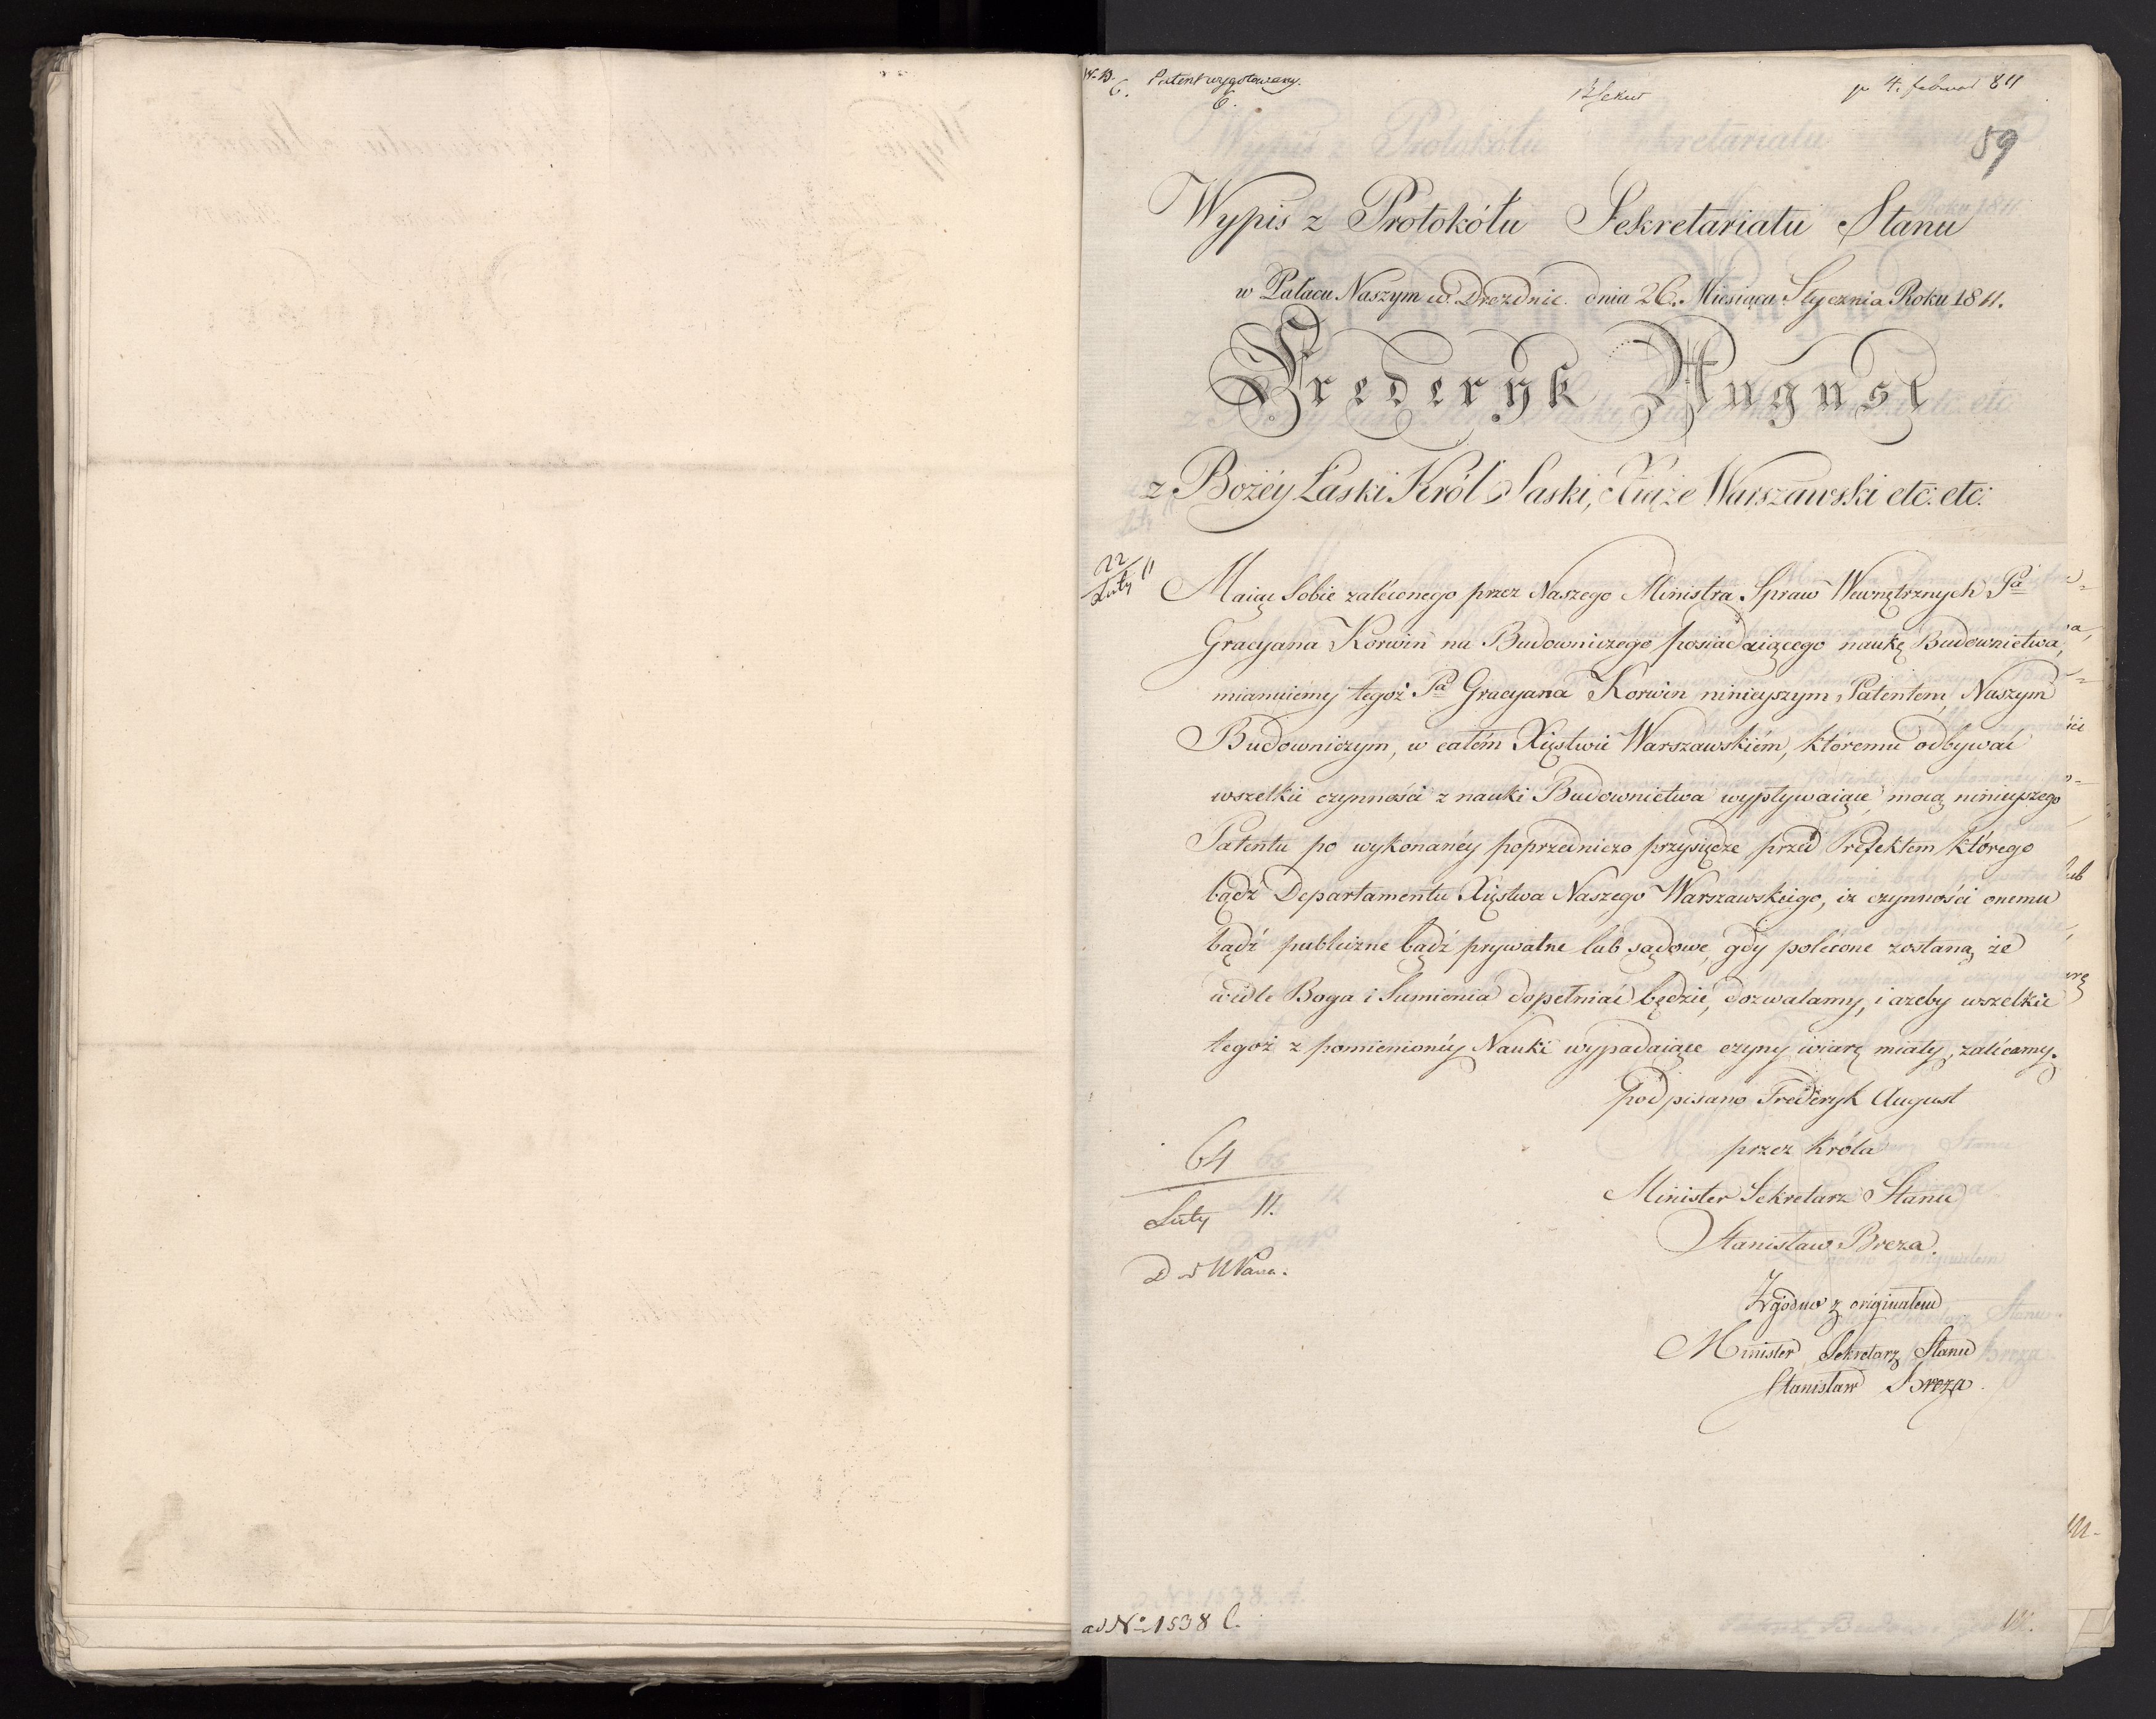 Patent wygotowany.
6.
pr 4. februar 811
59
Wypis z Protokółu Sekretariatu Stanu
w Pałacu Naszym w Dreznie dnia 26. Miesiąca Stycznia Roku 1811.
Frederyk August
z Bożéy Łaski Król Saski, Xiąże Warszawski etc: etc:
22
Luty 11
Maiąc Sobie zaleconego przez Naszego Ministra Spraw Wewnętrznych Pa
Gracyana Korwin na Budowniczego posiadaiącego naukę Budownictwa,
mianuiemy tegoż Pa Gracyana Korwin ninieyszym Patentem, Naszym
Budowniczym, w całém Xięstwie Warszawskiém, ktoremu odbywać
wszelkie czynności z nauki Budownictwa wypływaiące mocą ninieyszego
Patentu po wykonanéy poprzedniczo przysiędze przed Prefektem którego
bądź Departamentu Xięstwa Naszego Warszawskiego, iż czynności onemu
bądź publiczne bądź prywatne lub sądowe, gdy polecone zostaną, że
wedle Boga i Sumienia dopełniać będzie, dozwalamy, i ażeby wszelkie
tegoż z pomienionéy Nauki wypadaiące czyny wiarę miały, zalécamy.
podpisano Frederyk August
przez Króla
Minister Sekretarz Stanu
Stanisław Breza.
64
Luty 11.
Zgodno z originałem
Minister Sekretarz Stanu
Stanisław Breza.
ad No 1538 C.